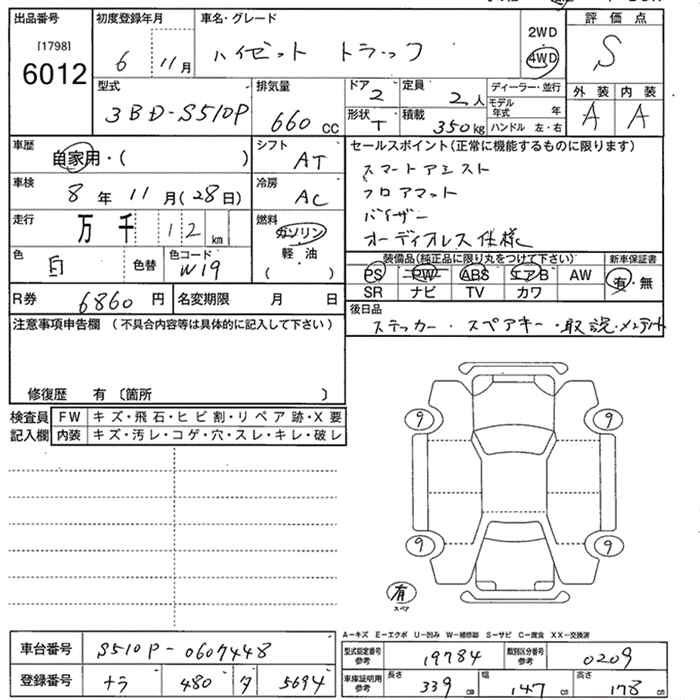 出品番号 初度登録年月 車名・グレード 2WD 評価点
[1798] 6012 6 11月 ハイゼット トラック 4WD S
型式 排気量 ドア 2 定員 2人 ディーラー・並行 外装 内装
3BD-S510P 660cc 形状 T 積載 350kg モデル年式 年 A A
ハンドル 左・右
車歴 シフト セールスポイント(正常に機能するものに限ります)
自家用・( ) AT スマートアシスト
車検 冷房 フロアマット
8年 11月(28日) AC バイザー
走行 燃料 オーディオレス仕様
万 千 12km ガソリン
軽油
( )
色 色替 色コード 装備品(純正品に限り丸をつけて下さい) 新車保証書
白 W19 PS PW ABS エアB AW 有・無
SR ナビ TV カワ
R券 6860円 名変期限 月 日 後日品
注意事項申告欄 (不具合内容等は具体的に記入して下さい) ステッカー・スペアキー・取説・メンテナント
修復歴 有 〔箇所 〕
検査員 FW キズ・飛石・ヒビ割・リペア跡・X要
記入欄 内装 キズ・汚レ・コゲ・穴・スレ・キレ・破レ
9 9
9 9
有
スペア
A−キズ E−エクボ U−凹み W−補修跡 S−サビ C−腐食 XX−交換済
車台番号 S510P-0607448 型式指定番号 参考 19784 類別区分番号 参考 0209
登録番号 ナラ 480 タ 5694 車庫証明用 参考 長さ 339cm 幅 147cm 高さ 178cm